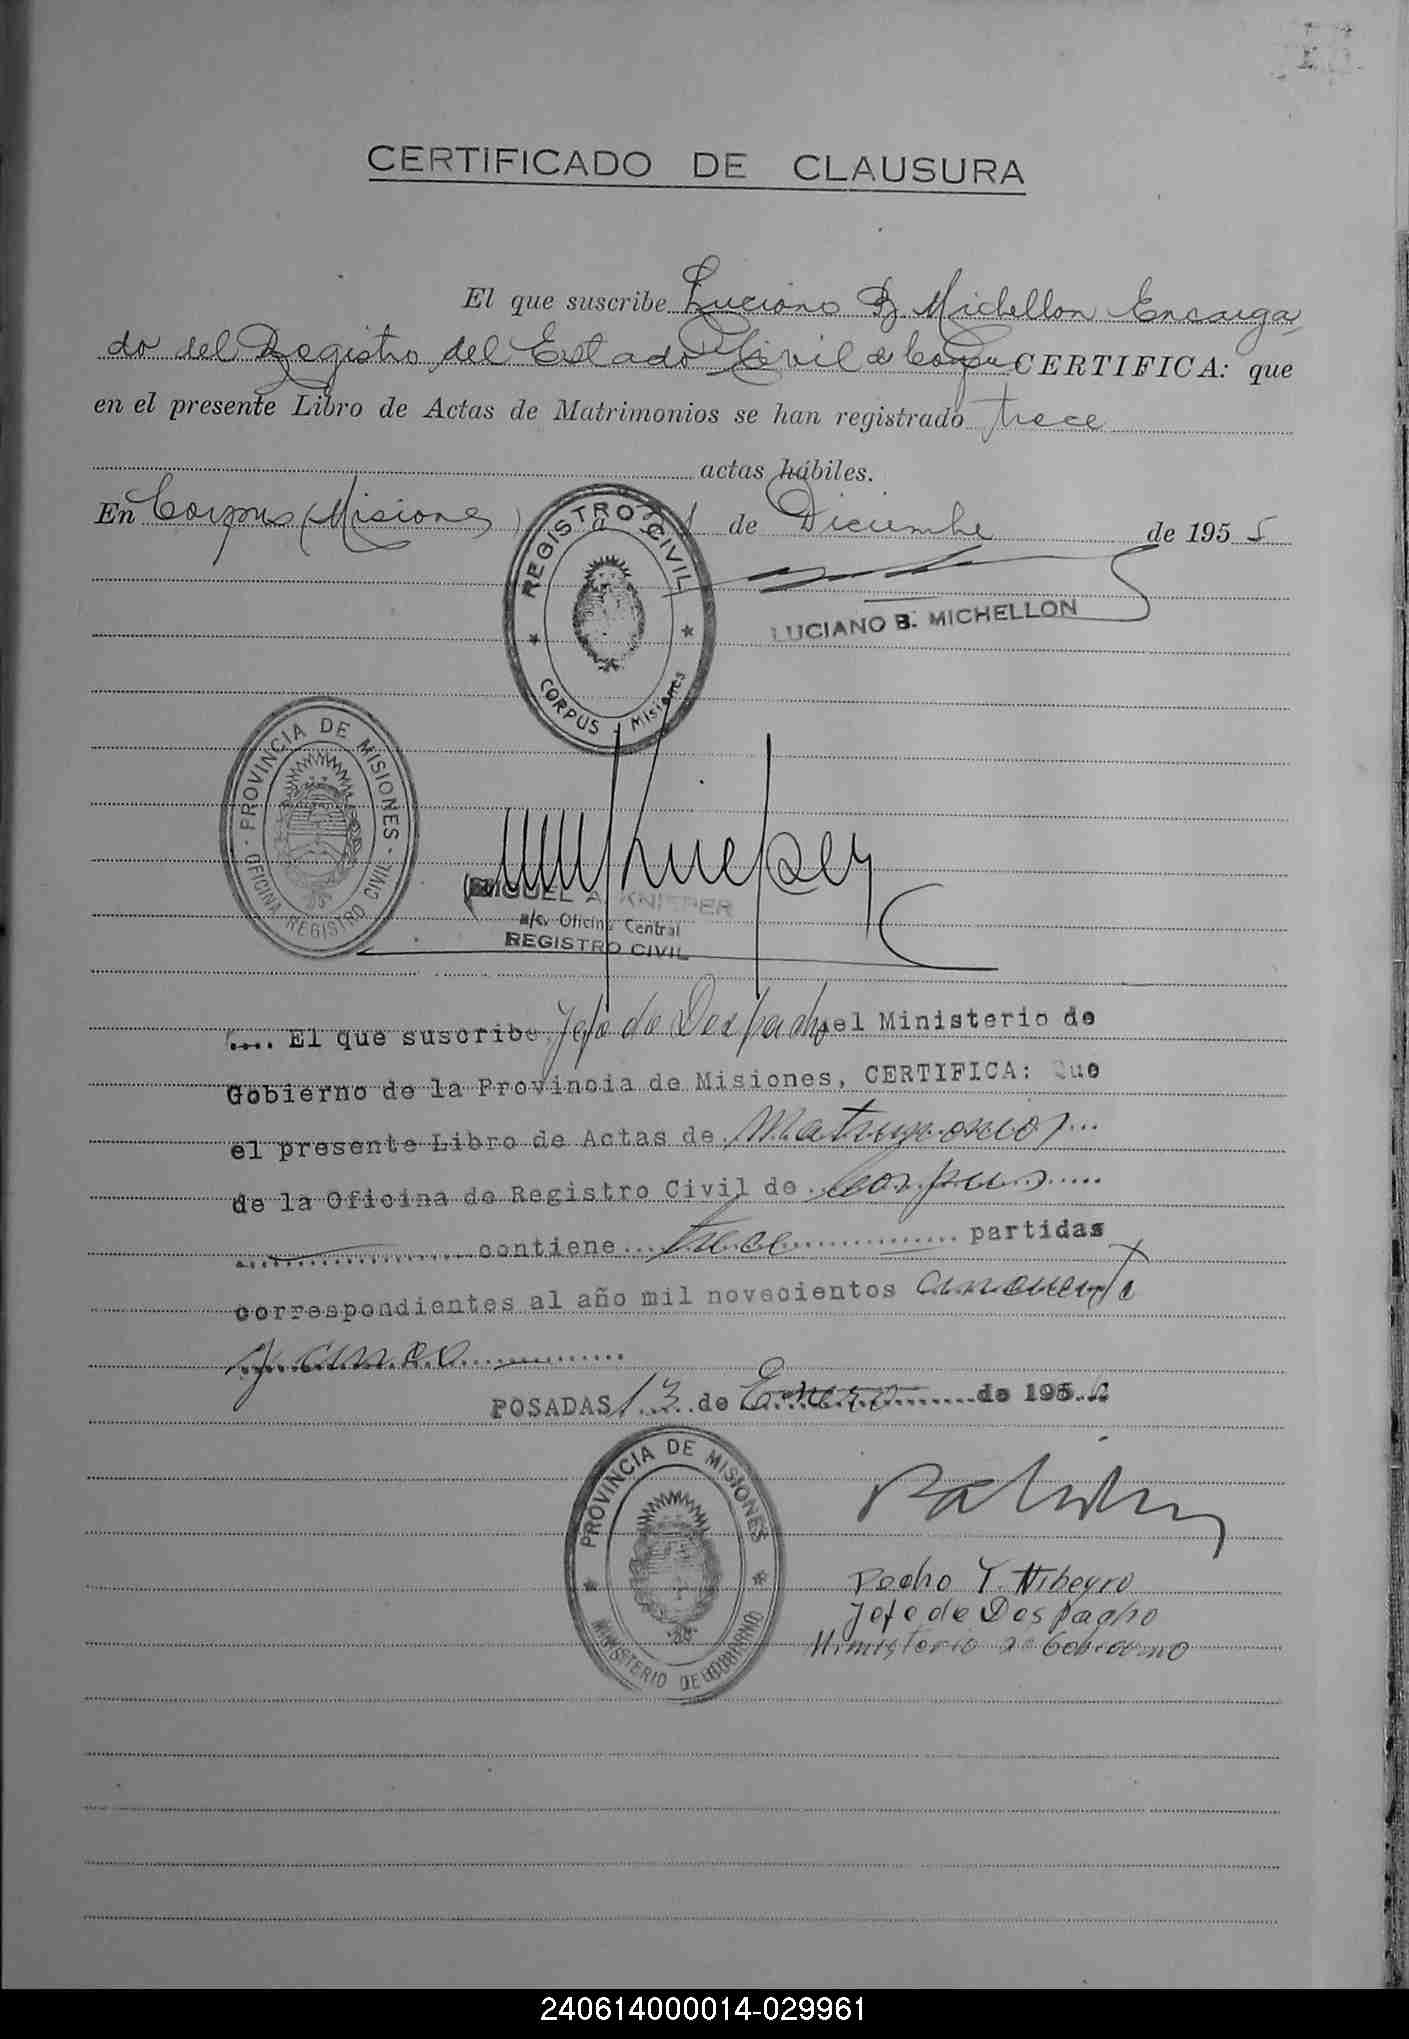 CERTIFICADO DE CLAUSURA
El que suscribe Luciano B. Michellon Encarga
do del Registro del Estado Civil de Corpus CERTIFICA: que
en el presente Libro de Actas de Matrimonios se han registrado trece
actas hábiles.
En Corpus (Misiones) a 31 de Diciembre de 1955
REGISTRO CIVIL
CORPUS - Misiones
LUCIANO B. MICHELLON
PROVINCIA DE MISIONES
OFICINA REGISTRO CIVIL
MIGUEL A. KNIEPER
a/c. Oficina Central
REGISTRO CIVIL
.... El que suscribe, Jefe de Despacho del Ministerio de
Gobierno de la Provincia de Misiones, CERTIFICA: Que
el presente Libro de Actas de Matrimonios
de la Oficina de Registro Civil de Corpus
contiene trece partidas
correspondientes al año mil novecientos cincuenta
y cinco
POSADAS 13 de Enero de 1956
PROVINCIA DE MISIONES
MINISTERIO DE GOBIERNO
Jefe de Despacho
Ministerio de Gobierno
240614000014-029961